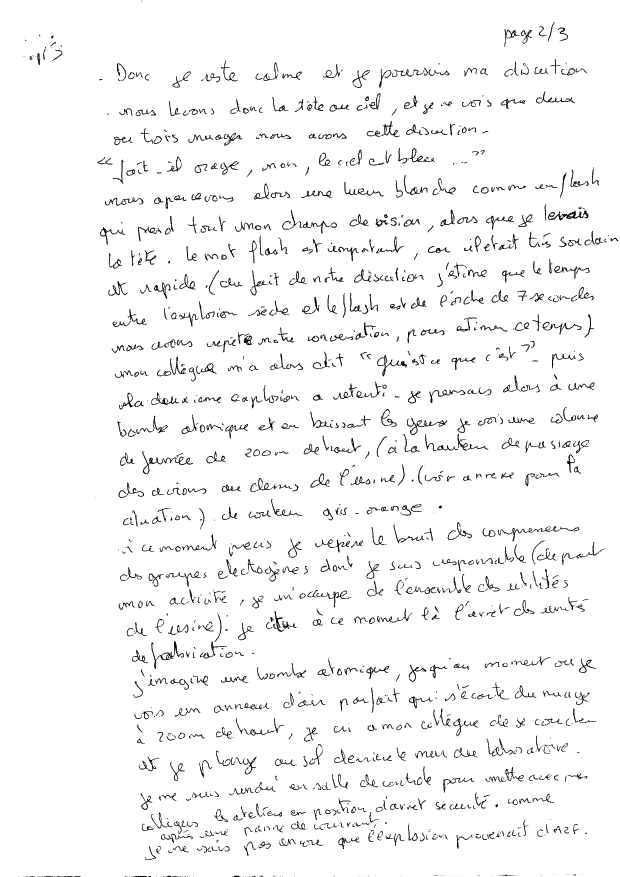 page 2/3
. Donc je reste calme et je poursuis ma discution
. nous levons donc la tête au ciel, et je ne vois que deux
ou trois nuages nous avons cette discution -
"fait-il orage, non, le ciel est bleu ...."
nous apercevons alors une lueur blanche comme un flash
qui prend tout mon champs de vision, alors que je levais
la tête. le mot flash est important, car il était très soudain
et rapide. (du fait de notre discution j'estime que le temps
entre l'explosion sèche et le flash est de l'ordre de 7 secondes
nous avons repété notre conversation, pour estimer ce temps)
mon collègue m'a alors dit "Qu'est ce que c'est" - puis
la deuxieme explosion a retenti - je pensais alors à une
bombe atomique et en baissant les yeux je vois une colonne
de fumée de 200m de haut, (à la hauteur de passage
des avions au dessus de l'usine). (voir annexe pour la
situation) de couleur gris-orange.
à ce moment precis je repère le bruit des compresseurs
des groupes electogènes dont je suis responsable (de part
mon activité, je m'occupe de l'ensemble des utilités
de l'usine). je à ce moment là l'arrêt des unités
de fabrication.
j'imagine une bombe atomique, jusqu'au moment ou je
vois un anneau d'air parfait qui s'écarte du nuage
à 200m de haut, je cri a mon collègue de se coucher
et je plonge au sol derriere le mur du laboratoire.
je me suis rendu en salle de controle pour mettre avec mes
collègues les ateliers en position d'arret sécurité. comme
après une panne de courant.
je ne sais pas encore que l'explosion provenait d'AZF.